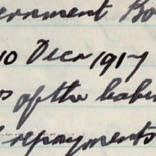 ernment Bo
10 Decr 1917
of the
repayments